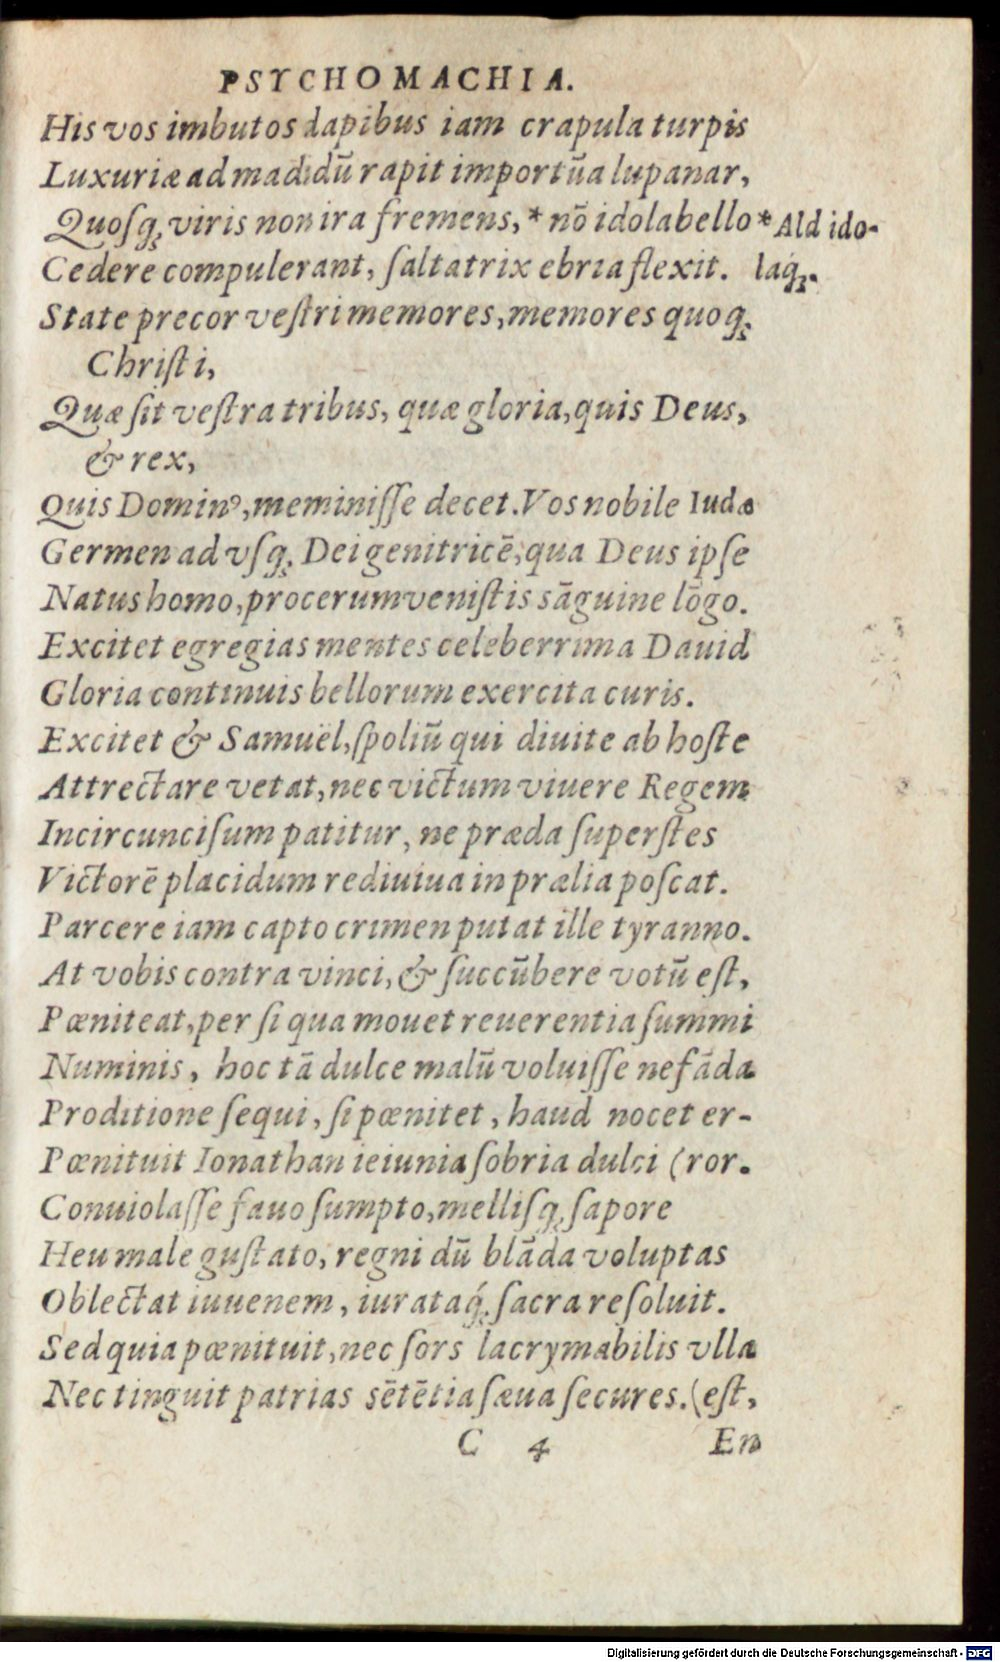 PSYCHOMACHIA.
His vos imbutos dapibus iam crapula turpis
Luxuriæ ad madidũ rapit importũa lupanar,
Quosq; viris non ira fremens, * nõ idola bello * Ald ido-
Cedere compulerant, ſaltatrix ebria flexit. laq;.
State precor veſtri memores, memores quoq;
Chriſti,
Quæ ſit veſtra tribus, quæ gloria, quis Deus,
& rex,
Quis Dominꝰ, meminiſſe decet. Vos nobile Iudæ
Germen ad vſq; Dei genitricẽ, qua Deus ipſe
Natus homo, procerum veniſtis sãguine lõgo.
Excitet egregias mentes celeberrima Dauid
Gloria continuis bellorum exercita curis.
Excitet & Samuël, ſpoliũ qui diuite ab hoſte
Attrectare vetat, nec victum viuere Regem
Incircunciſum patitur, ne præda ſuperſtes
Victorẽ placidum rediuiua in prælia poſcat.
Parcere iam capto crimen putat ille tyranno.
At vobis contra vinci, & ſuccũbere votũ eſt,
Pœniteat, per ſi qua mouet reuerentia ſummi
Numinis, hoc tã dulce malũ voluiſſe nefãda
Proditione ſequi, ſi pœnitet, haud nocet er-
Pœnituit Ionathan ieiunia ſobria dulci (ror.
Conuiolaſſe fauo ſumpto, melliſq; ſapore
Heu male guſtato, regni dũ blãda voluptas
Oblectat iuuenem, iurataq́; ſacra reſoluit.
Sed quia pœnituit, nec ſors lacrymabilis vlla
Nec tinguit patrias sẽtẽtia ſæua ſecures. (eſt,
C 4 En
Digitalisierung gefördert durch die Deutsche Forschungsgemeinschaft - DFG